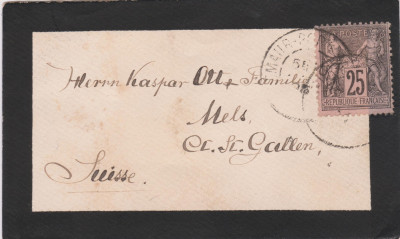 Herrn Kaspar Ott & Familie
Mels,
Ct. St. Gallen,
Suisse.
POSTE
25
REPUBLIQUE FRANÇAISE